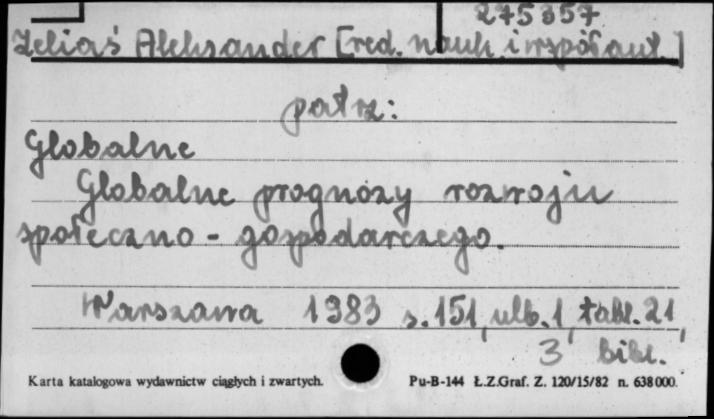 275357
Zeliaś Aleksander [red. nauk. i współaut.]
patrz:
Globalne
Globalne prognozy rozwoju
społeczno - gospodarczego.
Warszawa 1983 s.151, ulb.1, tabl.21,
3 bibl.
Karta katalogowa wydawnictw ciągłych i zwartych. Pu-B-144 Ł.Z.Graf. Z. 120/15/82 n. 638000.